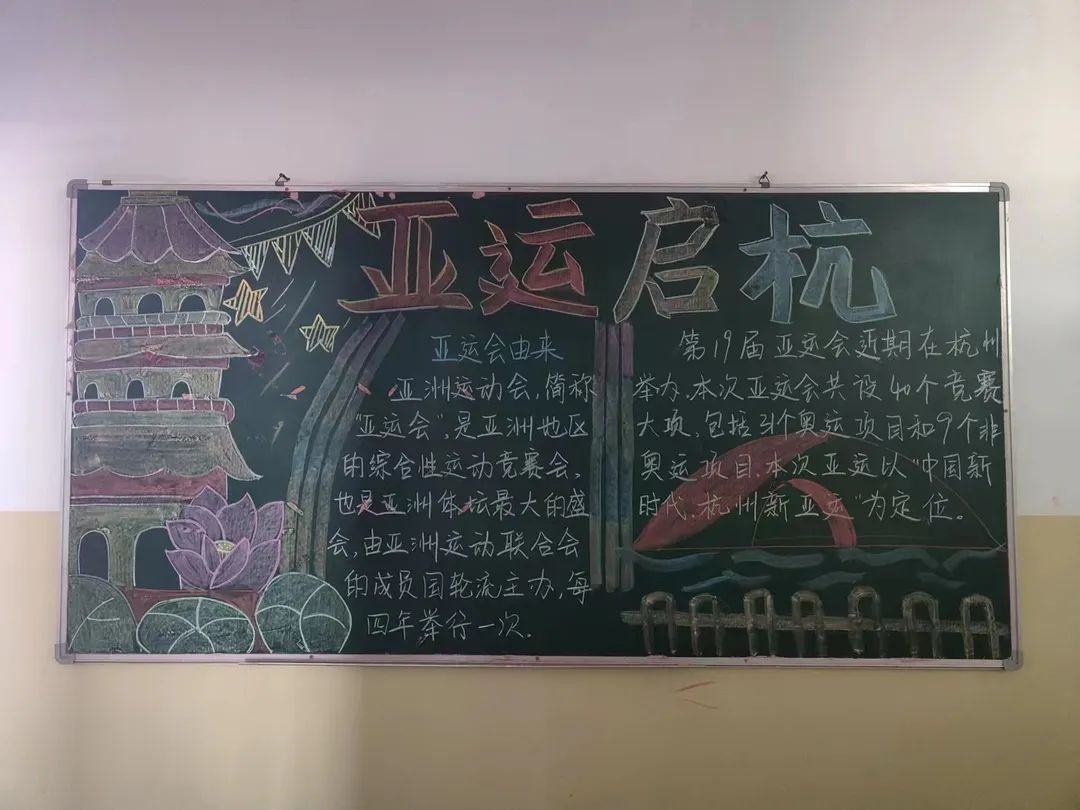 亚运启杭
亚运会由来
亚洲运动会,简称
"亚运会",是亚洲地区
的综合性运动竞赛会,
也是亚洲体坛最大的盛
会,由亚洲运动联合会
的成员国轮流主办,每
四年举行一次.
第19届亚运会近期在杭州
举办.本次亚运会共设40个竞赛
大项,包括31个奥运项目和9个非
奥运项目.本次亚运以"中国新
时代,杭州新亚运"为定位。